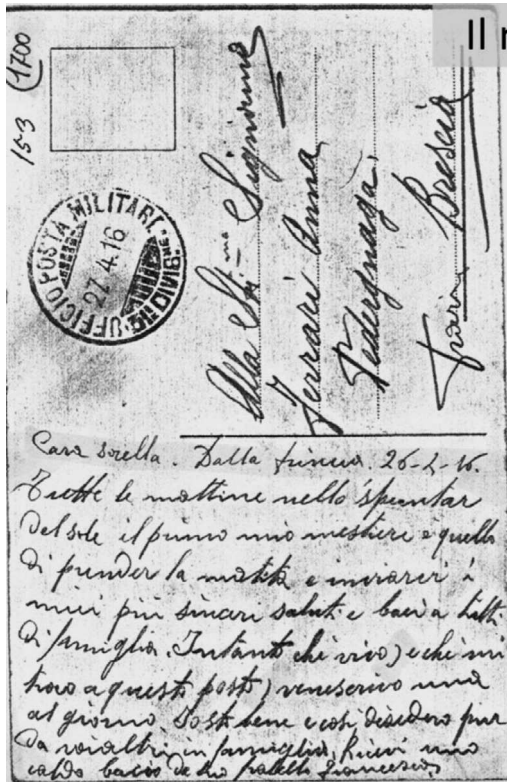 Il
15-3 (1700
UFFICIO POSTA MILITARE
27.4.16
Alla Sti.ma Signorina
Ferrari Anna
Pedergnaga
Brescia
Cara sorella. Dalla trincea. 26-4-16.
Tutte le mattine nello spuntar
del sole il primo mio mestiere è quello
di prender la matita e inviarci i
miei più sinceri saluti e baci a tutti
di famiglia. Intanto che vivo) e che mi
trovo a questo posto) ve ne scrivo una
al giorno. Sto bene e così desidero pur
da voialtri in famiglia, Ricevi uno
caldo bacio de tuo fratello Francesco